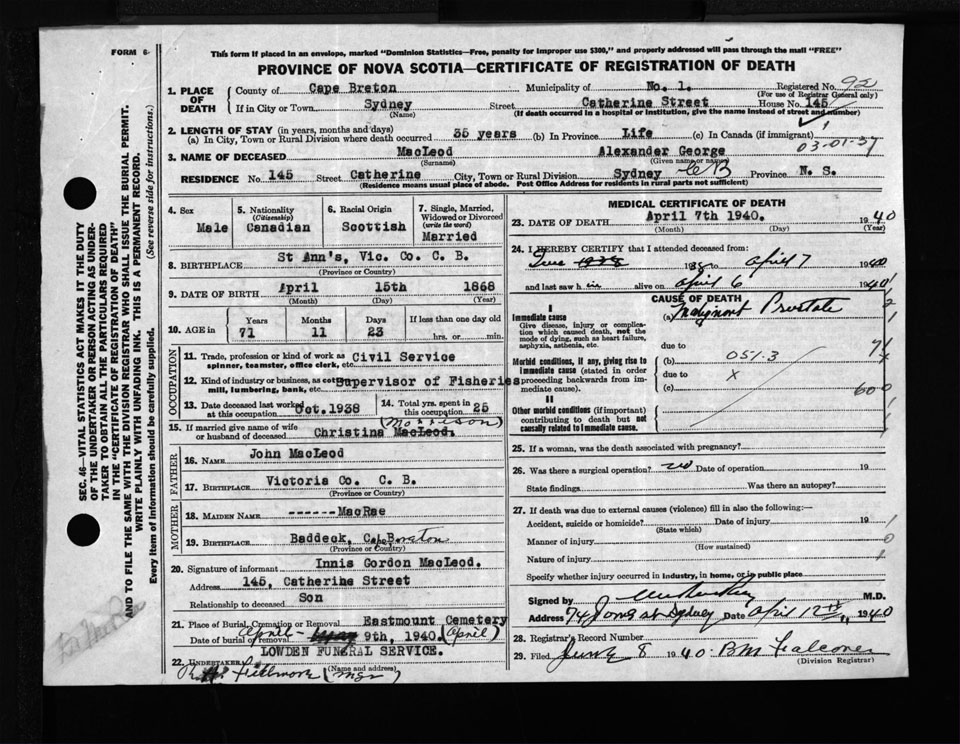 FORM 6
This form if placed in an envelope, marked "Dominion Statistics—Free, penalty for improper use $300," and properly addressed will pass through the mail "FREE"
PROVINCE OF NOVA SCOTIA—CERTIFICATE OF REGISTRATION OF DEATH
SEC. 46—VITAL STATISTICS ACT MAKES IT THE DUTY
OF THE UNDERTAKER OR PERSON ACTING AS UNDER-
TAKER TO OBTAIN ALL THE PARTICULARS REQUIRED
IN THE "CERTIFICATE OF REGISTRATION OF DEATH"
AND TO FILE THE SAME WITH THE DIVISION REGISTRAR WHO SHALL ISSUE THE BURIAL PERMIT.
WRITE PLAINLY WITH UNFADING INK. THIS IS A PERMANENT RECORD.
Every item of information should be carefully supplied. (See reverse side for instructions.)
1. PLACE OF DEATH
County of Cape Breton Municipality of No. 1. Registered No.
(For use of Registrar General only)
If in City or Town Sydney Street Catherine Street House No. 145
(Name) (If death occurred in a hospital or institution, give the name instead of street and number)
2. LENGTH OF STAY (in years, months and days)
(a) In City, Town or Rural Division where death occurred 35 years (b) In Province Life (c) In Canada (if immigrant)
03-01-37
3. NAME OF DECEASED MacLeod Alexander George
(Surname) (Given name or names)
RESIDENCE No. 145 Street Catherine City, Town or Rural Division Sydney C B Province N. S.
(Residence means usual place of abode. Post Office Address for residents in rural parts not sufficient)
4. Sex
Male
5. Nationality
(Citizenship)
Canadian
6. Racial Origin
Scottish
7. Single, Married, Widowed or Divorced
(write the word)
Married
8. BIRTHPLACE St Ann's, Vic. Co. C. B.
(Province or Country)
9. DATE OF BIRTH April 15th 1868
(Month) (Day) (Year)
10. AGE in Years Months Days If less than one day old
71 11 23 hrs. or min.
OCCUPATION
11. Trade, profession or kind of work as Civil Service
spinner, teamster, office clerk, etc.
12. Kind of industry or business, as cotton Supervisor of Fisheries
mill, lumbering, bank, etc.
13. Date deceased last worked at this occupation Oct. 1938
14. Total yrs. spent in this occupation 25
15. If married give name of wife or husband of deceased Christina MacLeod. (Morrison)
FATHER
16. NAME John MacLeod
17. BIRTHPLACE Victoria Co. C. B.
(Province or Country)
MOTHER
18. MAIDEN NAME ------MacRae
19. BIRTHPLACE Baddeck, Cape Breton
(Province or Country)
20. Signature of informant Innis Gordon MacLeod.
Address 145, Catherine Street
Relationship to deceased Son
21. Place of Burial, Cremation or Removal Eastmount Cemetery
Date of burial or removal April- May 9th, 1940. (April)
LOWDEN FUNERAL SERVICE.
22. UNDERTAKER
(Name and address)
Fillmore (mgr)
MEDICAL CERTIFICATE OF DEATH
23. DATE OF DEATH April 7th 1940. 1940
(Month) (Day) (Year)
24. I HEREBY CERTIFY that I attended deceased from:
June 1938 1938 to April 7 1940
and last saw him alive on April 6 1940
CAUSE OF DEATH
I
Immediate cause (a) Malignant Prostate
Give disease, injury or complica-
tion which caused death, not the
mode of dying, such as heart failure,
asphyxia, asthenia, etc. due to
Morbid conditions, if any, giving rise to (b) 051.3
immediate cause (stated in order due to x
proceeding backwards from im-
mediate cause). (c)
600
II
Other morbid conditions (if important)
contributing to death but not
causally related to immediate cause.
25. If a woman, was the death associated with pregnancy?
26. Was there a surgical operation? no Date of operation 19
State findings Was there an autopsy?
27. If death was due to external causes (violence) fill in also the following:—
Accident, suicide or homicide? Date of injury 19
(State which)
Manner of injury
(How sustained)
Nature of injury
Specify whether injury occurred in industry, in home, or in public place
Signed by M.D.
Address 74 Sydney Date April 12th 1940
28. Registrar's Record Number
29. Filed 8 1940 BM Falconer
(Division Registrar)